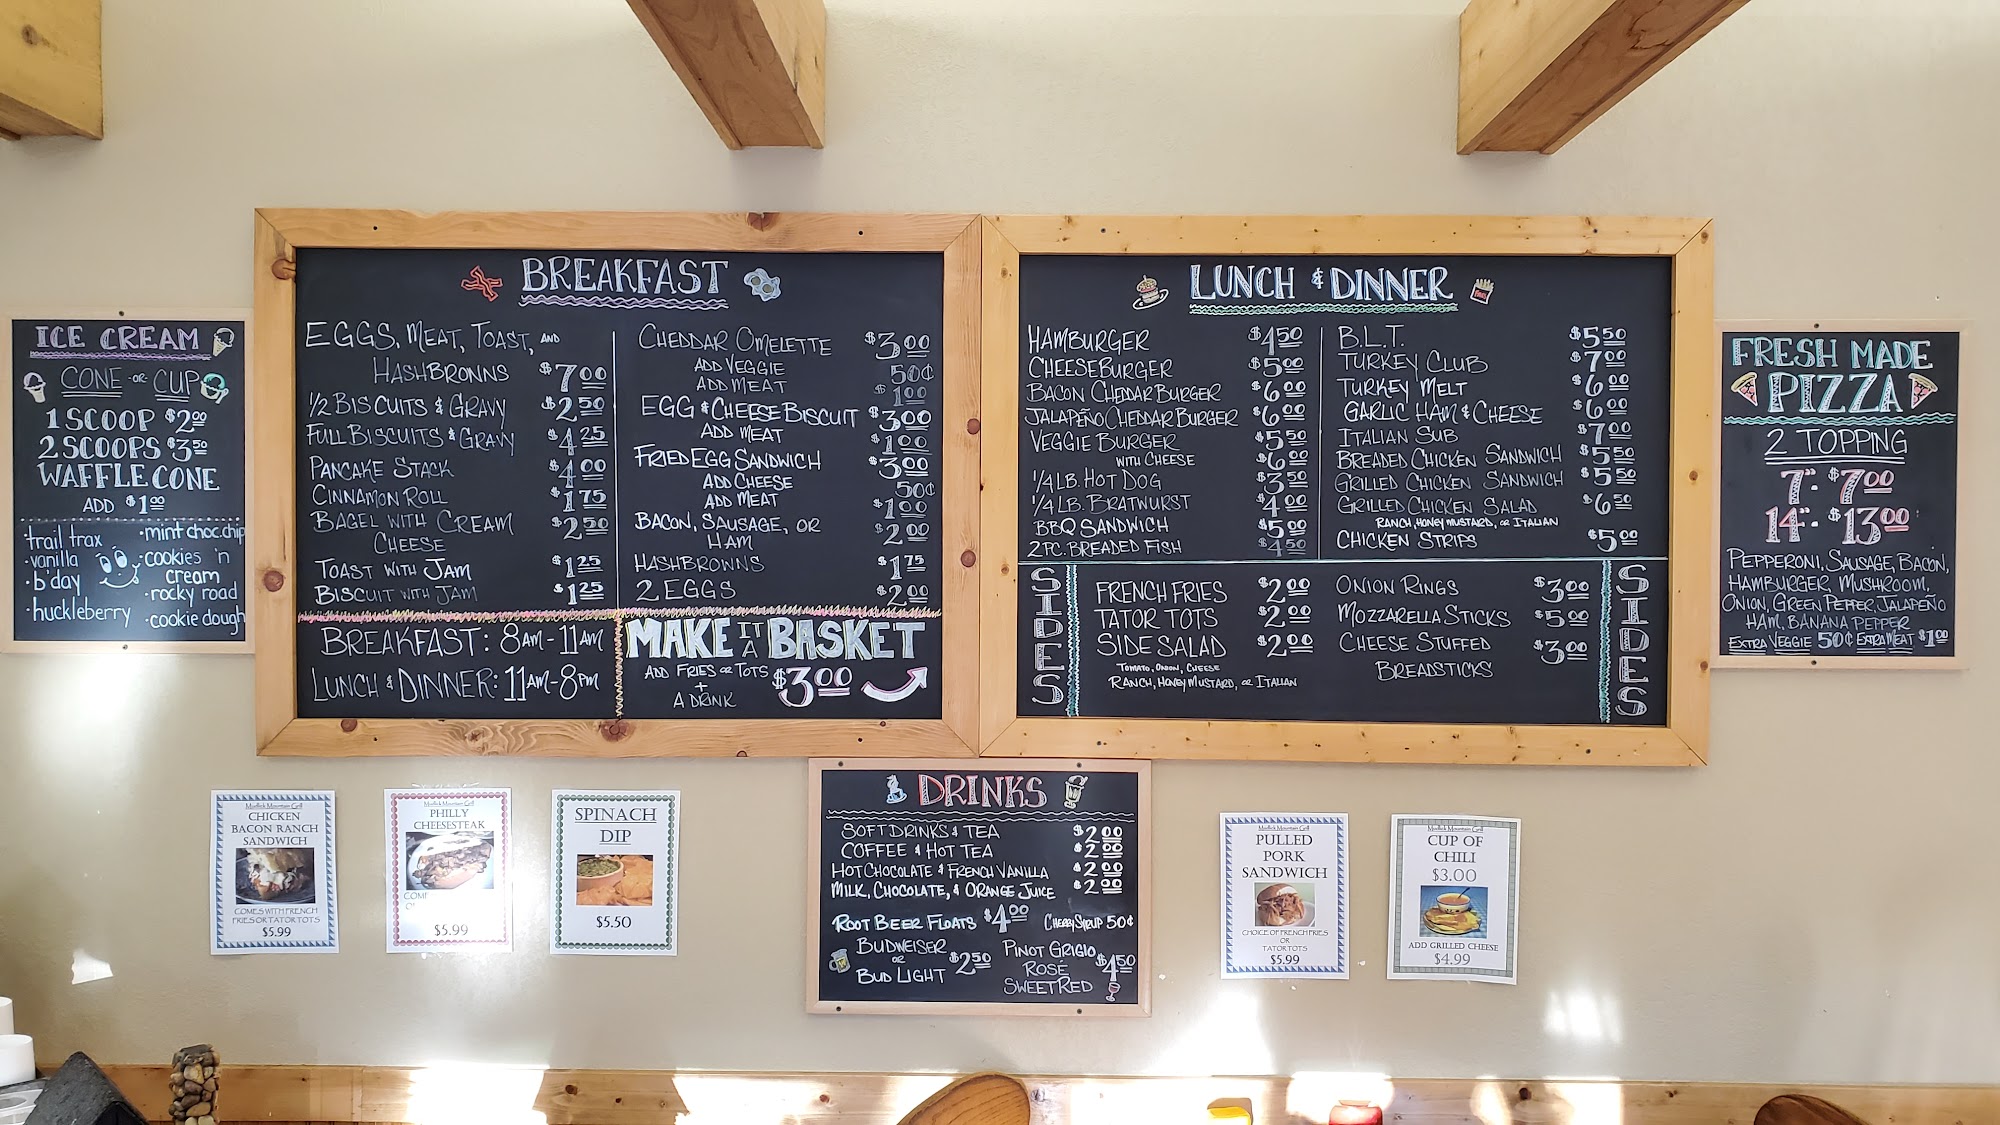 ICE CREAM
CONE OR CUP
1 SCOOP $2.00
2 SCOOPS $3.50
WAFFLE CONE
ADD $1.00
·trail trax
·vanilla
·b'day
·huckleberry
·mint choc.chip
·cookies 'n
cream
·rocky road
·cookie dough
BREAKFAST
EGGS, MEAT, TOAST, AND
HASHBROWNS $7.00
1/2 BISCUITS & GRAVY $2.50
FULL BISCUITS & GRAVY $4.25
PANCAKE STACK $4.00
CINNAMON ROLL $1.75
BAGEL WITH CREAM $2.50
CHEESE
TOAST WITH JAM $1.25
BISCUIT WITH JAM $1.25
CHEDDAR OMELETTE $3.00
ADD VEGGIE 50¢
ADD MEAT $1.00
EGG & CHEESE BISCUIT $3.00
ADD MEAT $1.00
FRIED EGG SANDWICH $3.00
ADD CHEESE 50¢
ADD MEAT $1.00
BACON, SAUSAGE, OR $2.00
HAM
HASHBROWNS $1.75
2 EGGS $2.00
BREAKFAST: 8AM-11AM
LUNCH & DINNER: 11AM-8PM
MAKE IT A BASKET
ADD FRIES OR TOTS
+
A DRINK
$3.00
LUNCH & DINNER
HAMBURGER $4.50
CHEESEBURGER $5.00
BACON CHEDDAR BURGER $6.00
JALAPEÑO CHEDDAR BURGER $6.00
VEGGIE BURGER $5.50
WITH CHEESE $6.00
1/4 LB. HOT DOG $3.50
1/4 LB. BRATWURST $4.00
BBQ SANDWICH $5.00
2 PC. BREADED FISH $4.50
B.L.T. $5.50
TURKEY CLUB $7.00
TURKEY MELT $6.00
GARLIC HAM & CHEESE $6.00
ITALIAN SUB $7.00
BREADED CHICKEN SANDWICH $5.50
GRILLED CHICKEN SANDWICH $5.50
GRILLED CHICKEN SALAD $6.50
RANCH, HONEY MUSTARD, OR ITALIAN
CHICKEN STRIPS $5.00
SIDES
FRENCH FRIES $2.00
TATOR TOTS $2.00
SIDE SALAD $2.00
TOMATO, ONION, CHEESE
RANCH, HONEY MUSTARD, OR ITALIAN
ONION RINGS $3.00
MOZZARELLA STICKS $5.00
CHEESE STUFFED $3.00
BREADSTICKS
SIDES
FRESH MADE
PIZZA
2 TOPPING
7": $7.00
14": $13.00
PEPPERONI, SAUSAGE, BACON,
HAMBURGER, MUSHROOM,
ONION, GREEN PEPPER, JALAPEÑO
HAM, BANANA PEPPER
EXTRA VEGGIE 50¢ EXTRA MEAT $1.00
Moellick Mountain Grill
CHICKEN
BACON RANCH
SANDWICH
COMES WITH FRENCH
FRIES OR TATOR TOTS
$5.99
Mountain Grill
PHILLY
CHEESESTEAK
$5.99
SPINACH
DIP
$5.50
DRINKS
SOFT DRINKS & TEA $2.00
COFFEE & HOT TEA $2.00
HOT CHOCOLATE & FRENCH VANILLA $2.00
MILK, CHOCOLATE, & ORANGE JUICE $2.00
ROOT BEER FLOATS $4.00 CHERRY SYRUP 50¢
BUDWEISER
OR
BUD LIGHT
$2.50
PINOT GRIGIO
ROSÉ
SWEET RED
$4.50
Mountain Grill
PULLED
PORK
SANDWICH
CHOICE OF FRENCH FRIES
OR
TATOR TOTS
$5.99
Mountain Grill
CUP OF
CHILI
$3.00
ADD GRILLED CHEESE
$4.99